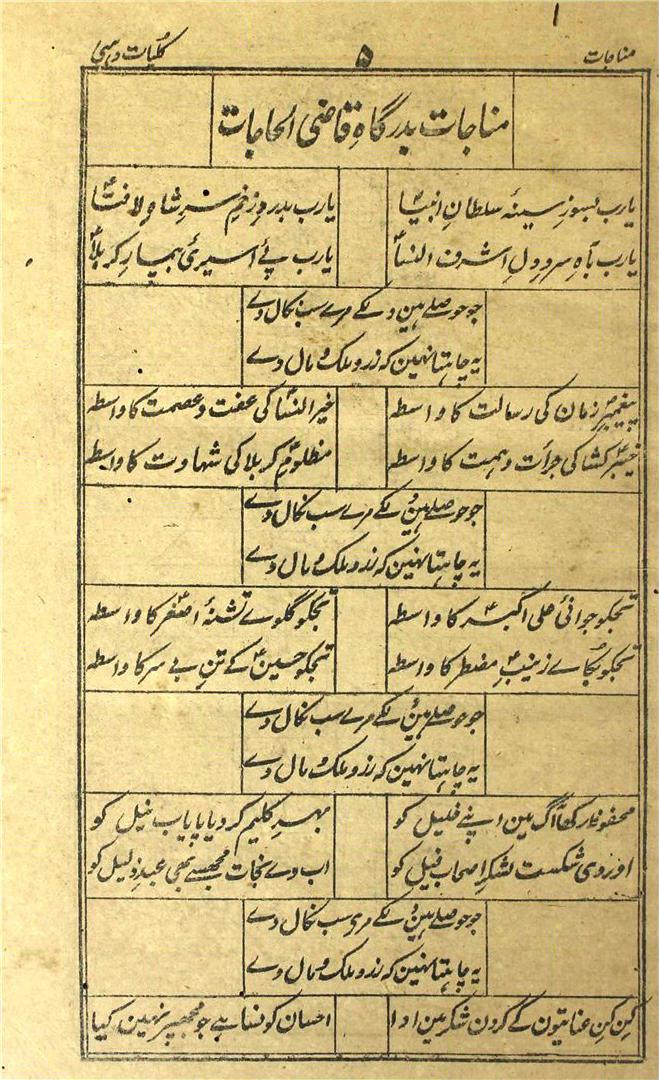 ۱
مناجات ۵ کلیات وہبی
مناجات بدرگاہِ قاضی الحاجات
یارب بسوزِ سینۂ سلطانِ انبیاؑ یارب بدردِ زخمِ سرِ شاہِ لافتاؑ
یارب بآہِ سردِ دلِ اشرف النساؑ یارب پئے اسیریِ بیمارِ کربلاؑ
جو حوصلے ہین دلکے مرے سب نکال دے
یہ چاہتا نہین کہ زر و ملک و مال دے
پیغمبرِ زمان کی رسالت کا واسطہ خیر النساؑ کی عفت و عصمت کا واسطہ
خیبر کشاؑ کی جرأت و ہمت کا واسطہ مظلومِ کربلا کی شہادت کا واسطہ
جو حوصلے ہین دلکے مرے سب نکال دے
یہ چاہتا نہین کہ زر و ملک و مال دے
تجکو جوانیٔ علی اکبرؑ کا واسطہ تجکو گلوے تشنۂ اصغرؑ کا واسطہ
تجکو بکاے زینبِؑ مضطر کا واسطہ تجکو حسینؑ کے تنِ بے سر کا واسطہ
جو حوصلے ہین دلکے مرے سب نکال دے
یہ چاہتا نہین کہ زر و ملک و مال دے
محفوظ رکھا آگ مین اپنے خلیل کو بہرِ کلیم کر دیا پایاب نیل کو
اور دی شکست لشکرِ اصحابِ فیل کو اب دے نجات مجھسے بھی عبدِ ذلیل کو
جو حوصلے ہین دلکے مری سب نکال دے
یہ چاہتا نہین کہ زر و ملک و مال دے
کن کن عنایتون کے کرون شکر مین ادا احسان کونسا ہے جو مجھپر نہین کیا